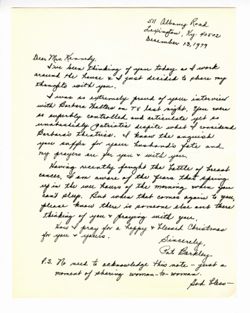 511 Albany Road
Lexington, Ky 40502
December 13, 1979
Dear Mrs. Kennedy,
I've been thinking of you today as I work
around the house & I just decided to share my
thoughts with you.
I was so extremely proud of your interview
with Barbara Walters on TV last night. You were
so superbly controlled, and articulate yet so
unabashedly patriotic despite what I considered
Barbara's theatrics. I know the anguish
you suffer for your husband's fate and
my prayers are for you & with you.
Having recently fought the battle of breast
cancer, I am aware of the fears that spring
up in the wee hours of the morning, when you
can't sleep. But when that comes again to you,
please know there is someone else out there
thinking of you & praying with you.
Now I pray for a happy & blessed Christmas
for you & yours.
Sincerely,
Pat Barkley
P.S. No need to acknowledge this note - just a
moment of sharing woman-to-woman.
God bless -